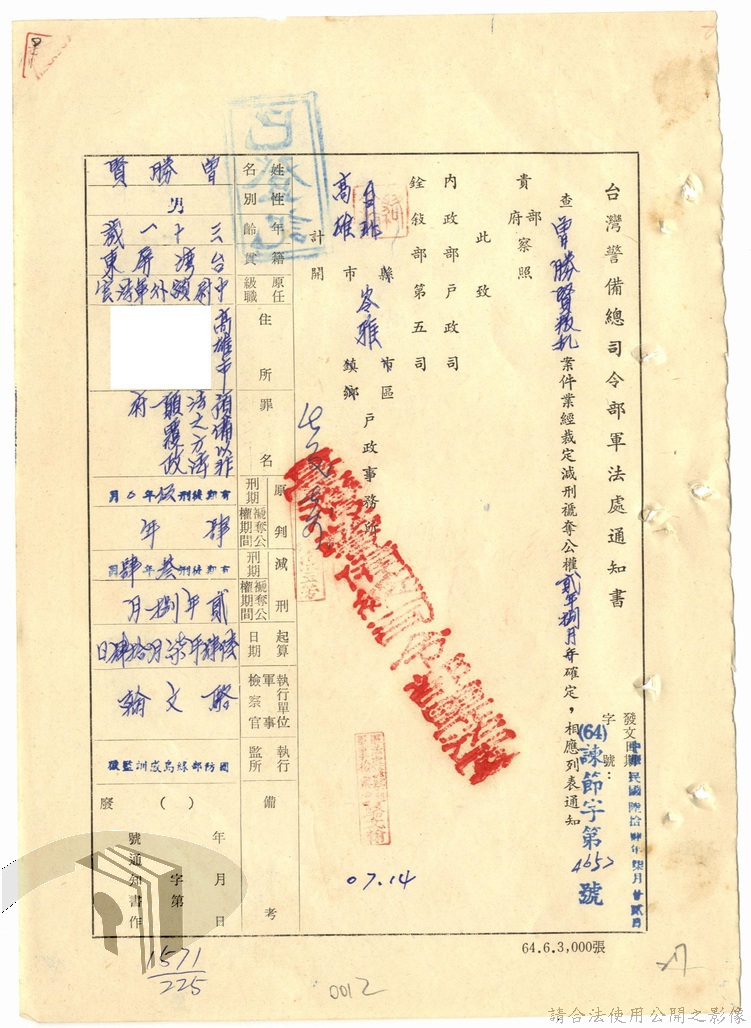 台灣警備總司令部軍法處通知書
發文日期 中華民國陸拾肆年柒月廿貳日
字號：(64)諫節字第4652號
查曾勝賢叛亂案件業經裁定減刑褫奪公權貳年捌月年確定，相應列表通知
貴部府察照
此致
內政部戶政司
銓敘部第五司
台北
高雄
縣市
苓雅
市區鎮鄉
戶政事務所
計開
姓名
曾勝賢
性別
男
年齡
三十一歲
籍貫
台灣屏東
原任級職
中尉額外
住所
高雄市
罪名
預備以非法之方法顛覆政府
原判
刑期
有期徒刑伍年0月
褫奪公權期間
肆年
減刑
刑期
有期徒刑叁年肆月
褫奪公權期間
貳年捌月
起算日期
執行單位軍事檢察官
文翰
執行監所
國防部綠島感訓監獄
備考
年月日
( )字第
號通知書作廢
已登記
07.14
64.6.3,000張
1571
225
0012
請合法使用公開之影像